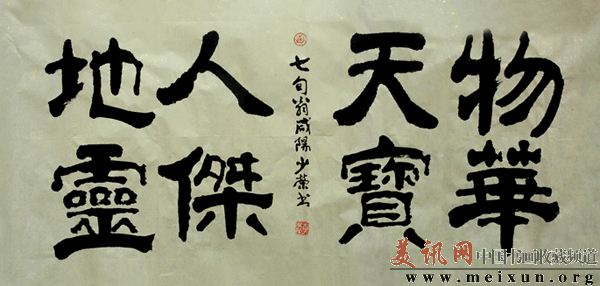 物華
天寶
七旬翁咸陽少荣书
人傑
地靈
美讯网中国书画收藏频道
www.meixun.org